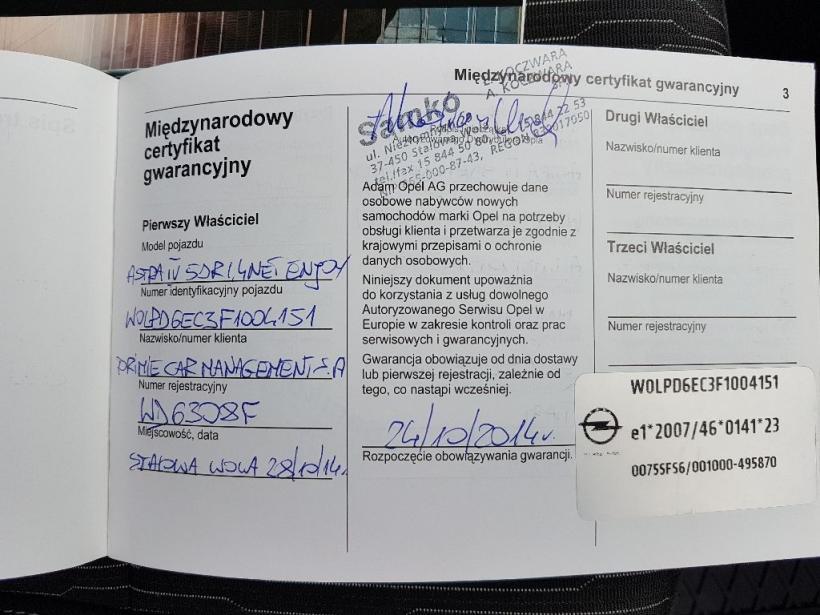 Międzynarodowy certyfikat gwarancyjny
3
Międzynarodowy
certyfikat
gwarancyjny
Pierwszy Właściciel
Model pojazdu
ASTRA IV 5DR 1,4NET ENJOY
Numer identyfikacyjny pojazdu
W0LPD6EC3F1004151
Nazwisko/numer klienta
PRIME CAR MANAGEMENT S.A
Numer rejestracyjny
WD6308F
Miejscowość, data
STALOWA WOLA 28/10/14r.
Samko
Ł. KOCZWARA
A. KOCZWARA
37-450 Stalowa
tel./fax 15 844 50 80
REGON
Adam Opel AG przechowuje dane
osobowe nabywców nowych
samochodów marki Opel na potrzeby
obsługi klienta i przetwarza je zgodnie z
krajowymi przepisami o ochronie
danych osobowych.
Niniejszy dokument upoważnia
do korzystania z usług dowolnego
Autoryzowanego Serwisu Opel w
Europie w zakresie kontroli oraz prac
serwisowych i gwarancyjnych.
Gwarancja obowiązuje od dnia dostawy
lub pierwszej rejestracji, zależnie od
tego, co nastąpi wcześniej.
24/10/2014r.
Rozpoczęcie obowiązywania gwarancji.
Drugi Właściciel
Nazwisko/numer klienta
Numer rejestracyjny
Trzeci Właściciel
Nazwisko/numer klienta
Numer rejestracyjny
W0LPD6EC3F1004151
e1*2007/46*0141*23
0075SFS6/001000-495870